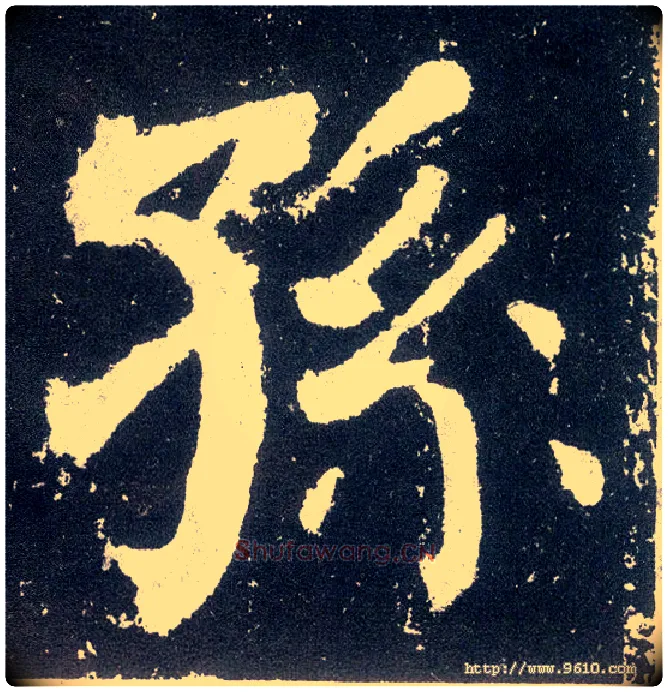 孫
Shufawang.CN
http://www.9610.com